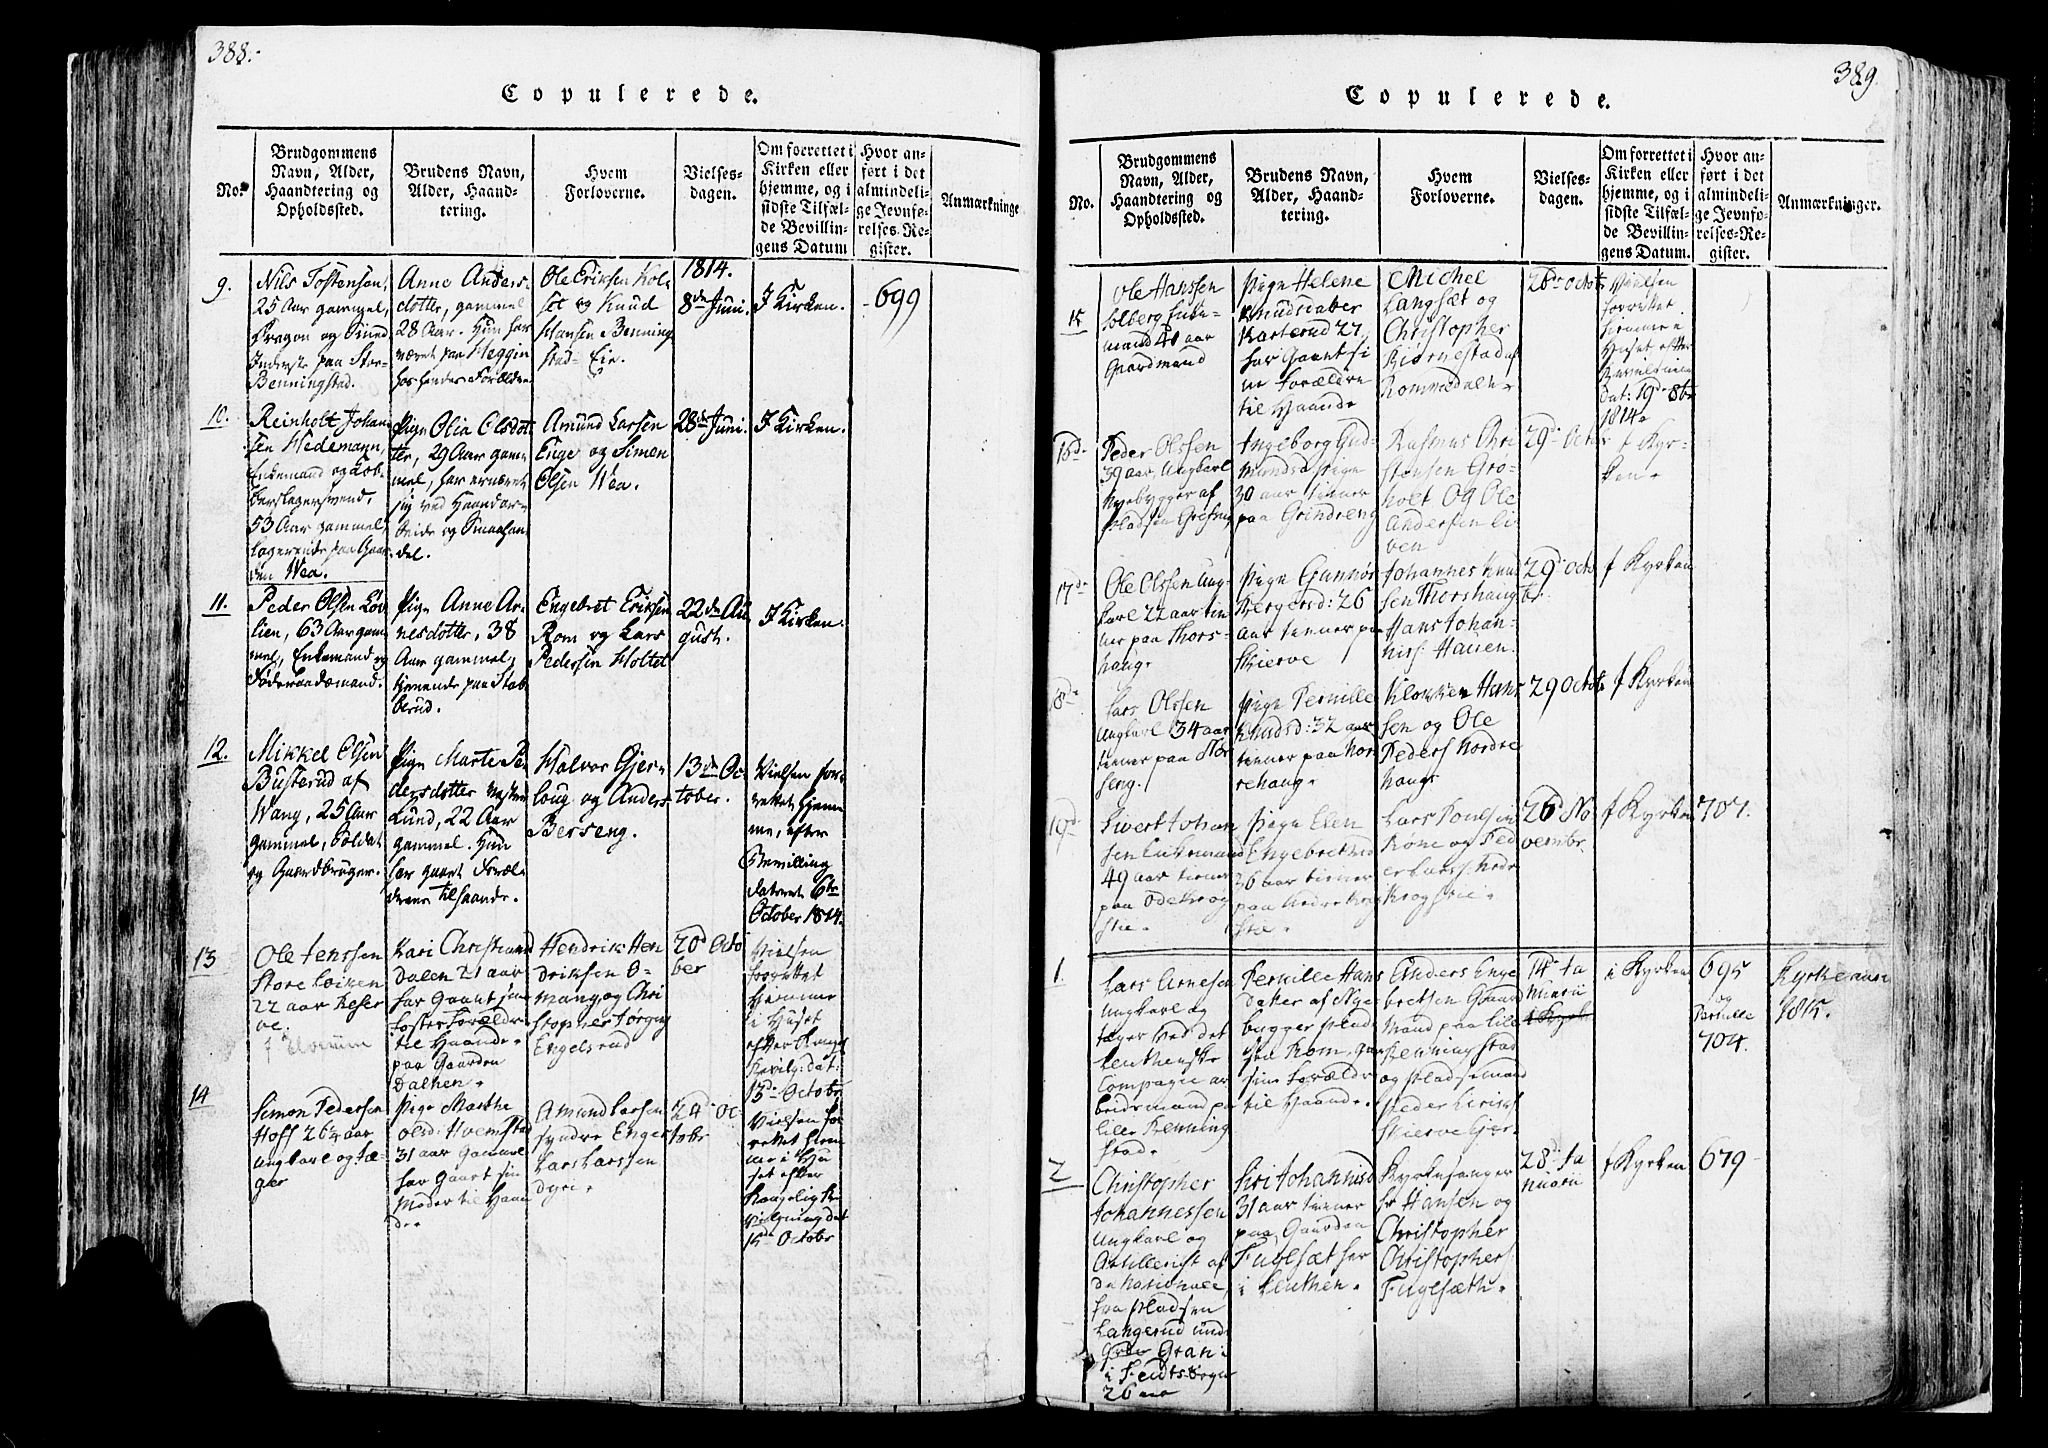 388.
Copulerede.
No.
Brudgommens
Navn, Alder,
Haandtering og
Opholdssted.
Brudens Navn,
Alder, Haand-
tering.
Hvem
Forloverne.
Vielses-
dagen.
Om forrettet i
Kirken eller
hjemme, og i
sidste Tilfæl-
de Bevillin-
gens Datum
Hvor an-
ført i det
almindeli-
ge Jevnfø-
relses-Re-
gister.
Anmærkninge
9.
Nils Tostensen,
25 Aar gammel,
Dragon og
Inderst paa Stor-
Benningstad.
Anne Anders-
dotter, gammel
28 Aar. Hun har
været paa Heggin
hos hendes Forældre
Ole Eriksen Kol-
set og Knud
Hansen Benning
stad-Eie.
1814.
8de Juni.
I Kirken.
699
10.
Reinholt Johan
sen Hedemann,
Enkemand og
53 Aar gammel,
paa Gaar
den Wea.
Pige Olia Olsdot
ter, 29 Aar gam
mel, har ernæret
sig ved Haandar-
beide og Smaahan
del.
Amund Larsen
Enge og Simen
Olsen Wea.
28de Juni.
I Kirken.
11.
Peder Olsen Løv
lien, 63 Aar gam
mel, Enkemand og
Føderaadsmand.
Pige Anne Ar-
nesdotter, 38
Aar gammel,
tjenende paa Stab
berud.
Engebret Eriksen
Rom og Lars
Pedersen Holtet
22de Au
gust.
I Kirken.
12.
Mikkel Olsen
Busterud af
Wang, 25 Aar
gammel, Soldat
og Gaardbruger.
Pige Marte Pe
dersdotter
Lund, 22 Aar
gammel. Hun
har gaaet Foræl-
drene tilhaande.
Halvor Gjer-
loug og Anders
Berseng.
13de Oc
tober.
Vielsen for-
rettet hjem
me, efter
Bevilling
dateret 6te
October 1814.
13
Ole Jenssen
Store Loiken
22 aar Reser
ve.
f Elverum
Kari Christiansd
Dalen 21 aar
har Gaaet sine
FosterForældre
til Haande
paa Gaarden
Dalhen.
Hendrik Hen
driksen O-
mang og Chri
stopher Jørgens
Engelsrud
20d Octo
ber
Vielsen
forrettet
Hiemme
i Huset
efter Kongl
Bevilg: dat:
13de Octobr
14
Simon Pedersen
Hoff 26¼ aar
Ungkarl og Jæ-
ger
Pige Marthe
Olsd: Hvemstad
31 aar Gammel
har Gaaet sin
Moder til Haan
de
Amund Larsen
Syndre Enger
Lars Larssen
24de Oc
tobr
Vielsen for
rettet Hiem
me i Hu
set efter
Kongelig Be
vilgning dat
15de Octobr
389.
Copulerede.
No.
Brudgommens
Navn, Alder,
Haandtering og
Opholdssted.
Brudens Navn,
Alder, Haand-
tering.
Hvem
Forloverne.
Vielses-
dagen.
Om forrettet i
Kirken eller
hjemme, og i
sidste Tilfæl-
de Bevillin-
gens Datum.
Hvor an-
ført i det
almindeli-
ge Jevnfø-
relses-Re-
gister.
Anmærkninger.
15
Ole Hanssen
Solberg Enke-
mand 40 aar
Gaardmand
Pige Helene
Knudsdater
Karterud 27
har Gaaet si
ne Forældre
til Haande
Michel
Langsæt og
Christopher
Biørnestad af
Rommedalen
26de Octobr
Vielsen
forrettet
hiemme i
Huset efter
Bevilling
Dat: 19de 8br
1814.
16de
Peder Olssen
39 aar Ungkarl
Nyebygger af
Pladsen
Ingeborg Gud-
mundsd Pige
30 aar tiener
paa Grindreng
Rasmus Chri
stensen Grø-
holt Og Ole
Andersen Li
ven
29de Octbr
f Kyr-
ken
17de
Ole Olssen Ung-
karl 22 aar tie-
ner paa Thors-
haug
Pige Gunnor
Bergersd: 26
aar tiener paa
Skierve
Johannes Knud
sen Thorshaug
Hans Johan-
niss: Hauen.
29d Octo
br.
f Kyrken
18de
Lars Olssen
Ungkarl 34 aar
tiener paa Stor
seng.
Pige Pernille
Knudsd: 32 aar
tiener paa Nor-
rehaug
Klokker Han-
sen og Ole
Peders Nordre
haug
29 Octob
f Kyrken
19d
Sivert Johan
sen Enkemand
49 aar tiener
paa Ode Krog
stie.
Pige Elen
Engebretsd
36 aar tiener
paa Nordre Krog
stie.
Lars Poulsen
Røne og Ped
er Larss: Nordr
Krogstie.
26d No
vembr.
f Kyrken
707.
1.
Lars Arnesen
Ungkarl og
Jæger ved det
Leuthenske
Compagnie ar
beidsmand paa
lille Benning
stad
Pernille Hans
dater af Nye-
bygger Plad
sen Rom, Gaar
sine Forældre
til Haande.
Anders Enge
bretsen Gaard
Mand paa Lille
Benningstad
og Pladsemand
Peder Erichs
Skierve Eier.
14de Ja
nuarii
i Kyrken
695
og
Pernille
704.
Kyrkeaar
1815.
2
Christopher
Johannessen
Ungkarl og
Artillerist af
de Nationale
fra Pladsen
Langerud und
Gran
i Feidtsbogn
26 aar
Siri Johannisd
31 aar tiener
paa Gaarden
Fuglsæt her
i Leuthen.
Kyrkesanger
Hr Hansen og
Christopher
Christophers:
Fuglsæth.
28de Ja
nuarii
f Kyrken
679